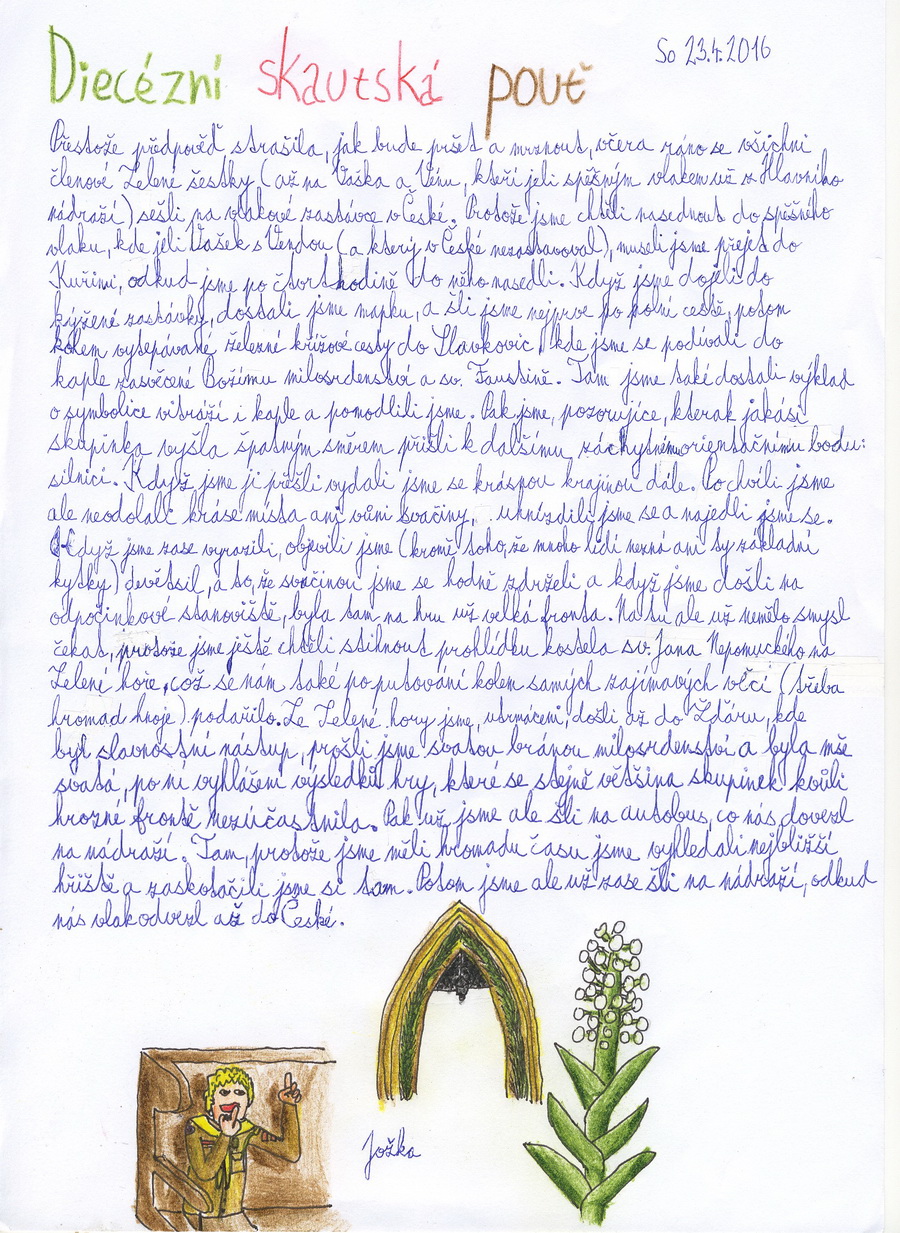 Diecézní skautská pouť
So 23.4.2016
Přestože předpověď strašila, jak bude pršet a mrznout, včera ráno se všichni
členové Zelené šestky (až na Vaška a Vénu, kteří jeli spěšným vlakem už z Hlavního
nádraží) sešli na vlakové zastávce v České. Protože jsme chtěli nasednout do spěšného
vlaku, kde jeli Vašek s Vendou (a který v České nezastavoval), museli jsme přejet do
Kuřimi, odkud jsme po čtvrthodině do něho nasedli. Když jsme dojeli do
kýžené zastávky, dostali jsme mapku, a šli jsme nejprve po polní cestě, potom
kolem vytepávané železné křížové cesty do Slavkovic, kde jsme se podívali do
kaple zasvěcené Božímu milosrdenství a sv. Faustině. Tam jsme také dostali výklad
o symbolice vitráží i kaple a pomodlili jsme. Pak jsme, pozorujíce, kterak jakási
skupinka vyšla špatným směrem přišli k dalšímu záchytnému orientačnímu bodu:
silnici. Když jsme ji přešli vydali jsme se krásnou krajinou dále. Po chvíli jsme
ale neodolali kráse místa ani vůni svačiny, uhnízdili jsme se a najedli jsme se.
Když jsme zase vyrazili, objevili jsme (kromě toho, že mnoho lidí nezná ani ty základní
kytky) devětsil, a to, že svačinou jsme se hodně zdrželi a když jsme došli na
odpočinkové stanoviště, byla tam na hru už velká fronta. Na tu ale už nemělo smysl
čekat, protože jsme ještě chtěli stihnout prohlídku kostela sv. Jana Nepomuckého na
Zelené hoře, což se nám také po putování kolem samých zajímavých věcí (třeba
hromad hnoje) podařilo. Ze Zelené hory jsme, utrmáceni, došli až do Žďáru, kde
byl slavnostní nástup, prošli jsme svatou bránou milosrdenství a byla mše
svatá, po ní vyhlášení výsledků hry, které se stejně většina skupinek kvůli
hrozné frontě nezúčastnila. Pak už jsme ale šli na autobus, co nás dovezl
na nádraží. Tam, protože jsme měli hromadu času jsme vyhledali nejbližší
hřiště a zaskotačili jsme si tam. Potom jsme ale už zase šli na nádraží, odkud
nás vlak odvezl až do České.
Jožka